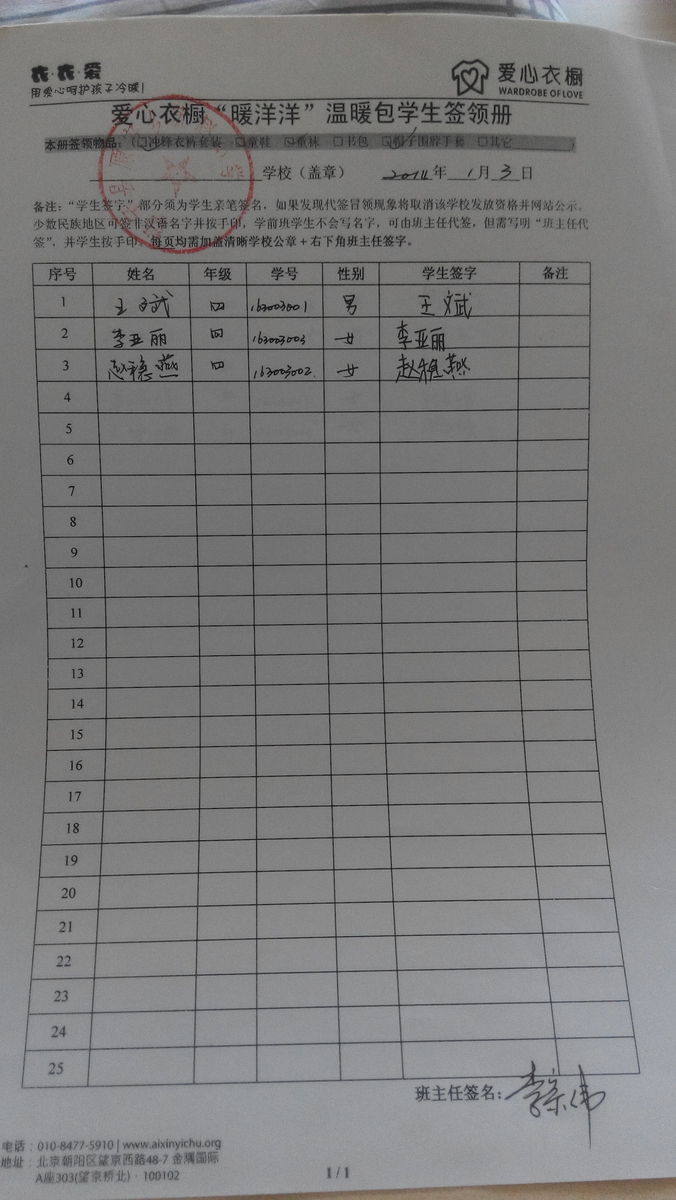 衣·衣·爱
用爱心呵护孩子冷暖!
爱心衣橱
WARDROBE OF LOVE
爱心衣橱“暖洋洋”温暖包学生签领册
本册签领物品:(☑冲锋衣裤套装 □童鞋 ☑童袜 □书包 ☑帽子围脖手套 □其它 )
学校(盖章) 2014年 1月3日
备注:“学生签字”部分须为学生亲笔签名,如果发现代签冒领现象将取消该学校发放资格并网站公示。
少数民族地区可签非汉语名字并按手印,学前班学生不会写名字,可由班主任代签,但需写明“班主任代
签”,并学生按手印,每页均需加盖清晰学校公章+右下角班主任签字。
序号 姓名 年级 学号 性别 学生签字 备注
1 王文斌 四 163003001 男 王文斌
2 李亚丽 四 163003003 女 李亚丽
3 赵稳燕 四 163003002. 女 赵稳燕
4
5
6
7
8
9
10
11
12
13
14
15
16
17
18
19
20
21
22
23
24
25
班主任签名:
电话:010-8477-5910 | www.aixinyichu.org
地址:北京朝阳区望京西路48-7 金隅国际
A座303(望京桥北)·100102
1 / 1